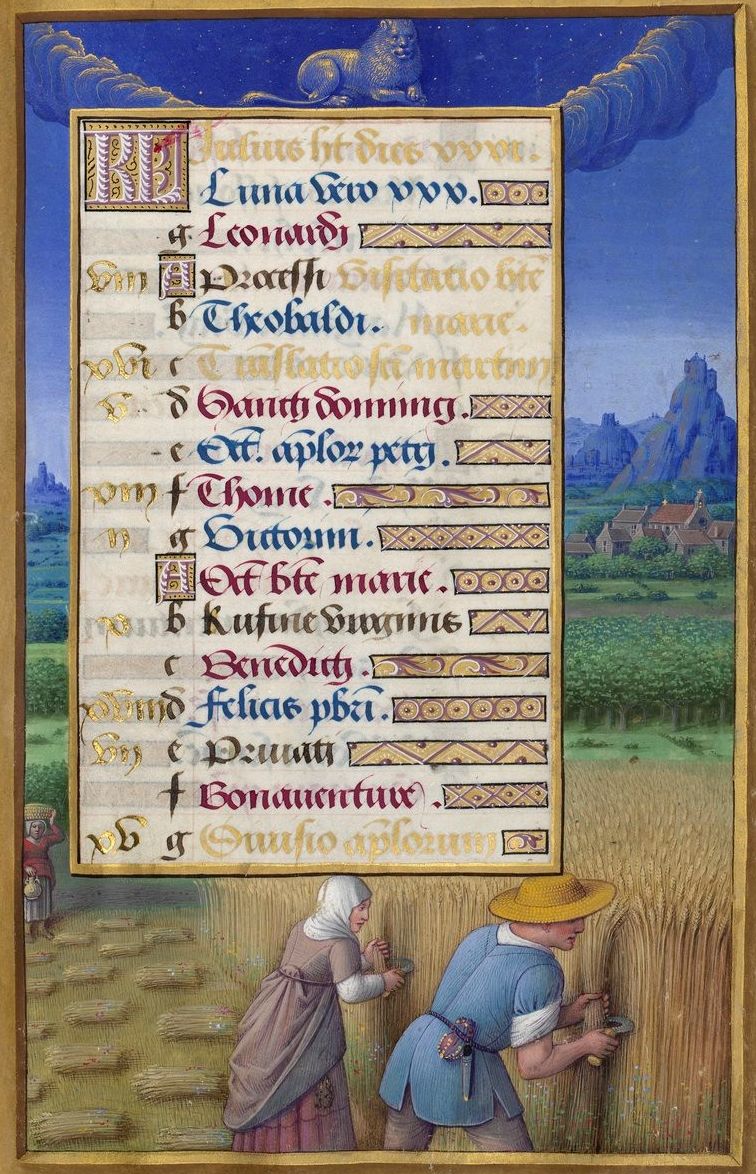 KL Julius ht dies xxxi.
Luna vero xxx.
g Leonardi
viii A Processi Visitatio bte
b Theobaldi. marie.
xvi c Translatio sci martini
v d Sancti dominici.
e Oct. aplor petri.
xiii f Thome.
ii g Victorini.
A Oct bte marie.
x b Rufine virginis
c Benedicti.
xviii d felicis pbri.
vii e Privati
f Bonaventure.
xv g Divisio aplorum